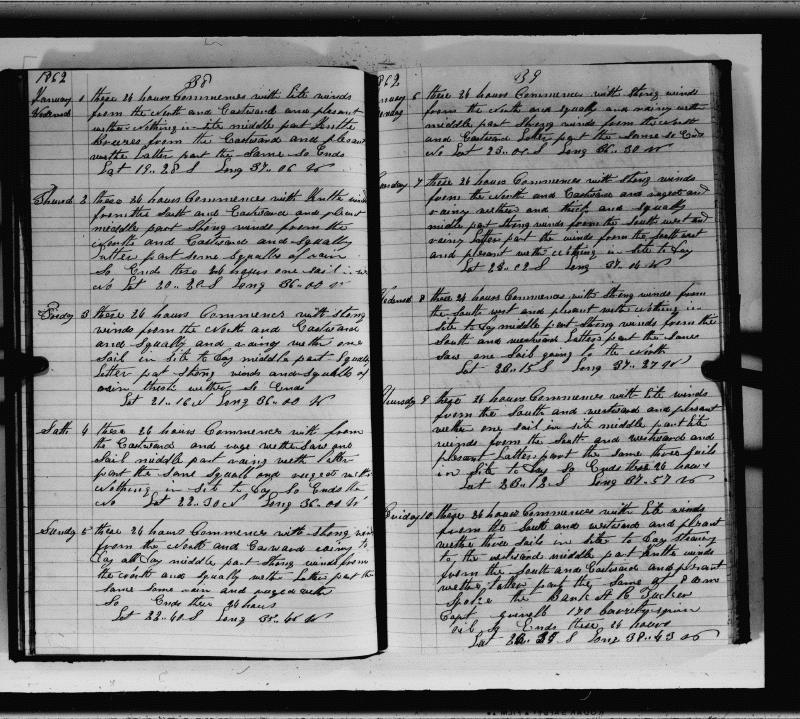 1862
38
January 1 these 24 hours Commences with lite winds
Wedensd from the North and Eastward and pleasant
wether nothing in site middle part Gentle
Breezes from the Eastward and pleasant
wethe Latter part the Same So Ends
Lat 19..28 S Long 37..06 W
Thursd 2 these 24 hours Commences with Gentle winds
from the South and Eastward and plesant
middle part Strong winds from the
North and Eastward and Squally
latter part some Squalls of rain
So Ends these 24 hours one sail in
No Lat 20..20 S Long 36..00 W
Friday 3 these 24 hours Commences with strong
winds from the North and Eastward
and Squally and rainy wether one
Sail in Site to Day middle part Squally
Latter pat strong winds and Squalls of
rain thick wether So Ends
Lat 21..16 Long 36..00 W
Sath 4 these 24 hours Commences with from
the Eastward and ruge wether Saw one
Sail middle part rainy weth latter
part the Same Squaly and ruged with
Nothing in Site to Day So Ends the
No Lat 22..30 Long 36..00 W
Sunday 5 these 24 hours Commences with strong wind
from the North and Easward
Day all Day middle part Strong winds from
the north and Squally wethe Latter part the
same some rain and ruged wether
So Ends these 24 hours
Lat 22..40 S Long 35..46 W
1862
39
6 these 24 hours Commences with Strong winds
from the North and Squally and rainy weth
middle part Strong winds from the North
and Eastward Latter part the Same So Ends
No Lat 23..04 S Long 36..30 W
7 these 24 hours Commences with strong winds
from the North and Eastward and ruged and
rainy wether and thick and Squally
midle part Strong winds from the South west and
rainy latter part the winds from the South east
and plesant wethe nothing in Site to Day
Lat 23..02 S Long 37..04 W
Wedensd 8 these 24 hours Commences with Strong winds from
the South west and plesant weth nothing in
Site to Day middle part Strong winds from the
South and westward Latter part the Same
Saw one Sail going to the North
Lat 23..15 S Long 37..27 W
Thursday 9 these 24 hours Commences with lite winds
from the South and westward and plesant
wether one sail in site middle part lite
winds from the South and westward and
plesant Latter part the same three Sails
in Site to Day So Ends these 24 hours
Lat 23..12 S Long 37..57 W
Friday 10 these 24 hours Commences with lite winds
from the South and westward and plesant
wethe three Sails in Site to Day Stearing
to the westward middle part Gentle winds
from the South and Eastward and plesant
wether latter part the Same at 8 am
Spoke the Bark A R Tucker
Capt 170 barels sperm
oil So Ends these 24 hours
Lat 23.. S Long 38..43 W